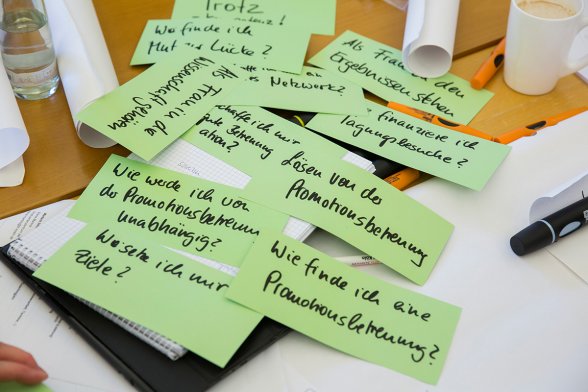 Trotz
Wo finde ich
Mut zur Lücke?
Als Frau zu den
Ergebnissen stehen
Als Frau in die
Wissenschaft gehören
Netzwerk?
finanziere ich
Tagungsbesuche?
schaffe ich mir
gute Betreuung
ation?
Lösen von der
Promotionsbetreuung
Wie werde ich von
der Promotionsbetreuung
unabhängig?
Wo setze ich mir
Ziele?
Wie finde ich eine
Promotionsbetreuung?